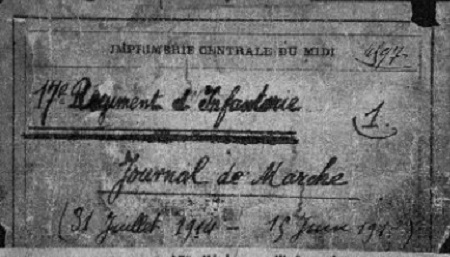 IMPRIMERIE CENTRALE DU MIDI
17e Regiment d'Infanterie
1.
Journal de Marche
(31 Juillet 1914 - 15 Juin 191